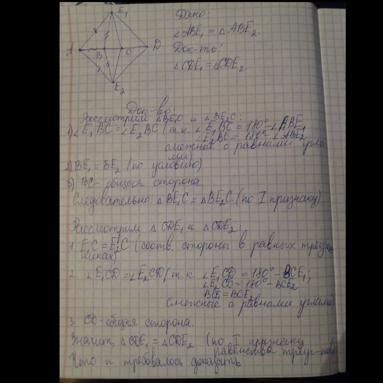 E₁
A B C D
E₂
Дано:
△ABE₁ = △ABE₂.
Док-ть:
△CDE₁ = △CDE₂
Док-во:
Рассмотрим △BE₁C и △BE₂C:
1) ∠E₁BC = ∠E₂BC (т.к. ∠E₁BC = 180° - ∠ABE₁
∠E₂BC = 180° - ∠ABE₂
смежные с равными угла
ми)
2) BE₁ = BE₂ (по условию)
3) BC - общая сторона
Следовательно △BE₁C = △BE₂C (по I признаку)
Рассмотрим △CDE₁ и △CDE₂
1. E₁C = E₂C (соотв. стороны в равных треуго
льниках)
2. ∠E₁CD = ∠E₂CD, т.к. ∠E₁CD = 180° - BCE₁;
∠E₂CD = 180° - BCE₂
BCE₁ = BCE₂
смежные с равными углами
3. CD - общая сторона.
Значит, △CDE₁ = △CDE₂ (по I признаку
равенства треуг-ов)
Что и требовалось доказать.